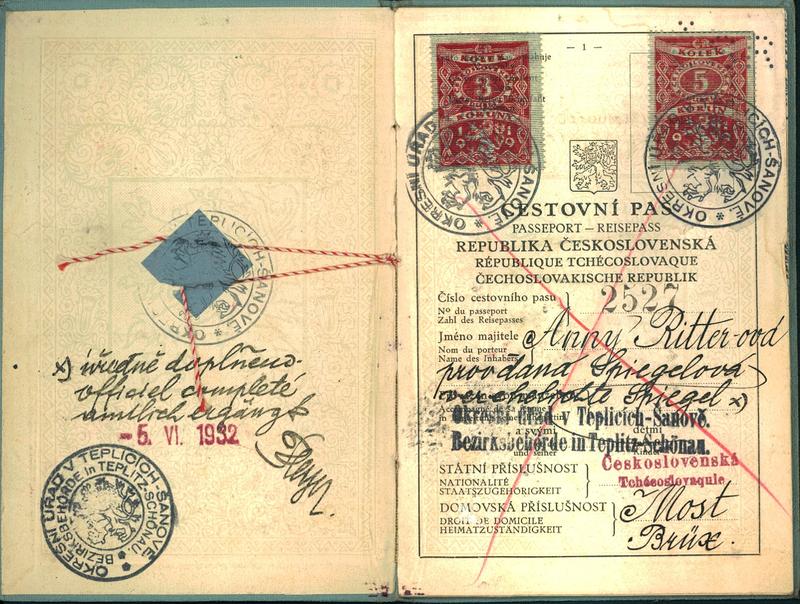 x) úředně doplněno
officiel completé
amtlich ergänzt
-5. VI. 1932
OKRESNÍ ÚŘAD V TEPLICÍCH-ŠANOVĚ
BEZIRKSBEHÖRDE in TEPLITZ-SCHÖNAU
— 1 —
KOLEK
3
KORUNA
KOLEK
5
KORUNA
OKRESNÍ ÚŘAD
TEPLICÍCH-ŠANOVĚ
CESTOVNÍ PAS
PASSEPORT — REISEPASS
REPUBLIKA ČESKOSLOVENSKÁ
RÉPUBLIQUE TCHÉCOSLOVAQUE
ČECHOSLOVAKISCHE REPUBLIK
Číslo cestovního pasu
No du passeport
Zahl des Reisepasses
2527
Jméno majitele
Nom du porteur
Name des Inhabers
Anny Ritter-ová
provdaná Spiegelová
verehelichte Spiegel x)
Okresní úřad v Teplicích-Šanově.
Bezirksbehörde in Teplitz-Schönau.
a svými
dětmi
und seiner
Kinder
STÁTNÍ PŘÍSLUŠNOST
NATIONALITÉ
STAATSZUGEHÖRIGKEIT
Československá
Tchécoslovaquie
DOMOVSKÁ PŘÍSLUŠNOST
DROIT DE DOMICILE
HEIMATZUSTÄNDIGKEIT
Most
Brüx.